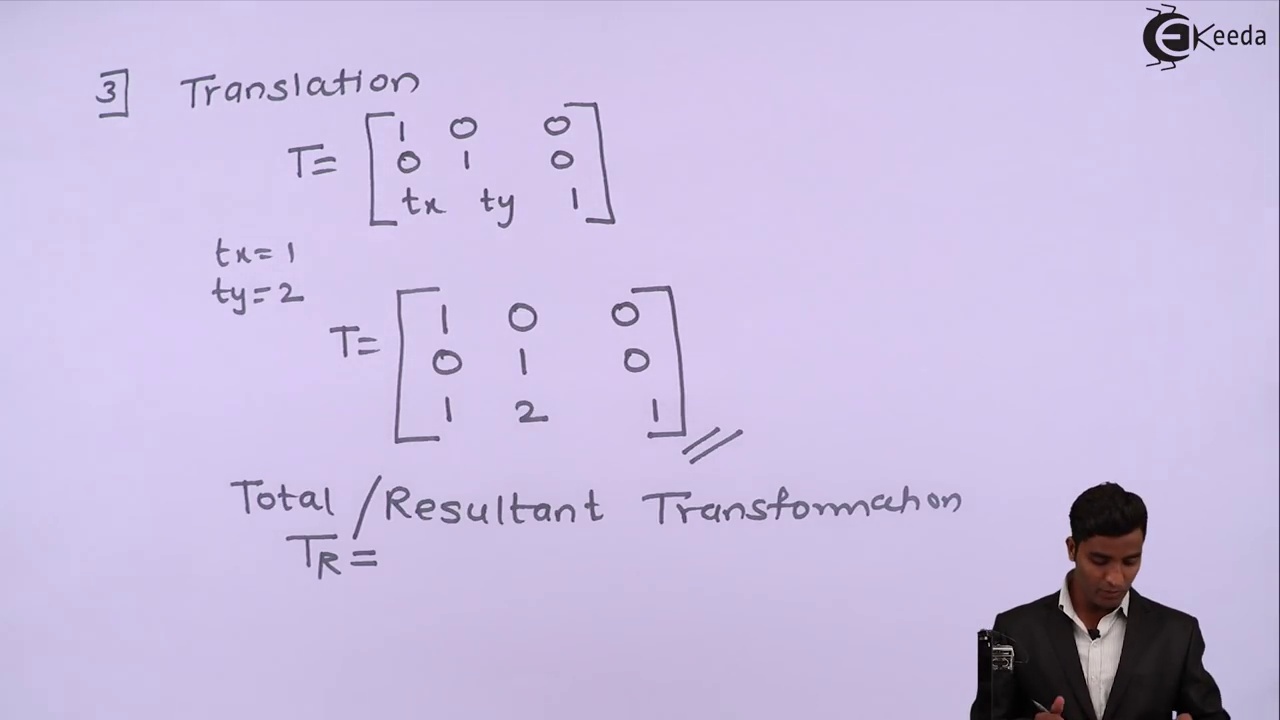 Keeda
3] Translation
T= [ 1 0 0
0 1 0
tx ty 1 ]
tx = 1
ty = 2
T= [ 1 0 0
0 1 0
1 2 1 ] //
Total / Resultant Transformation
TR =